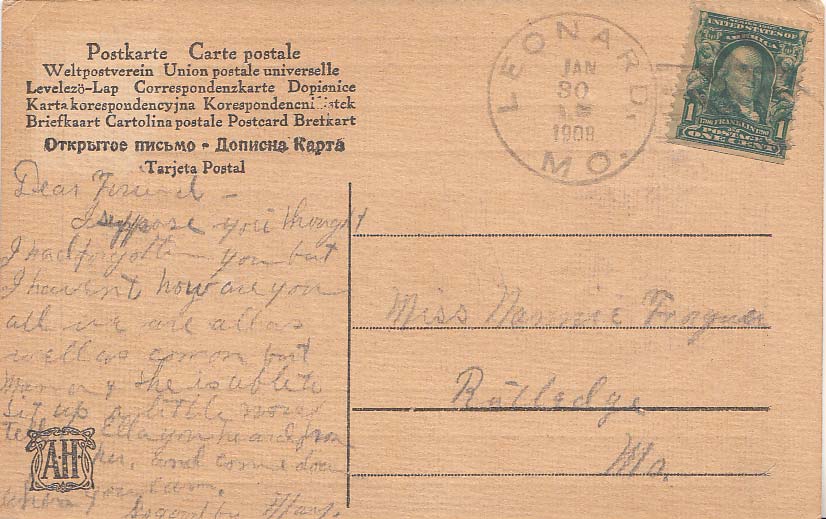 Postkarte Carte postale
Weltpostverein Union postale universelle
Levelező-Lap Correspondenzkarte Dopisnice
Karta korespondencyjna Korespondencni listek
Briefkaart Cartolina postale Postcard Bretkart
Открытое письмо - Дописна Карта
Tarjeta Postal
LEONARD, MO.
JAN
30
1908
UNITED STATES OF
AMERICA
1 FRANKLIN 1
POSTAGE
ONE CENT
Dear Friend -
I suppose you thought
I had forgotten you but
I havent how are you
all we are all as
well as comon but
Mama & she is able to
sit up a little now
Tell Ella you heard from
her, and come down
when you can.
good by Mary.
Miss Nannie
Rutledge
Mo.
A.H.